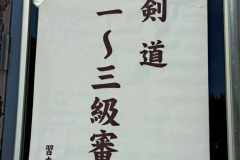 剣道
一～三級審
習